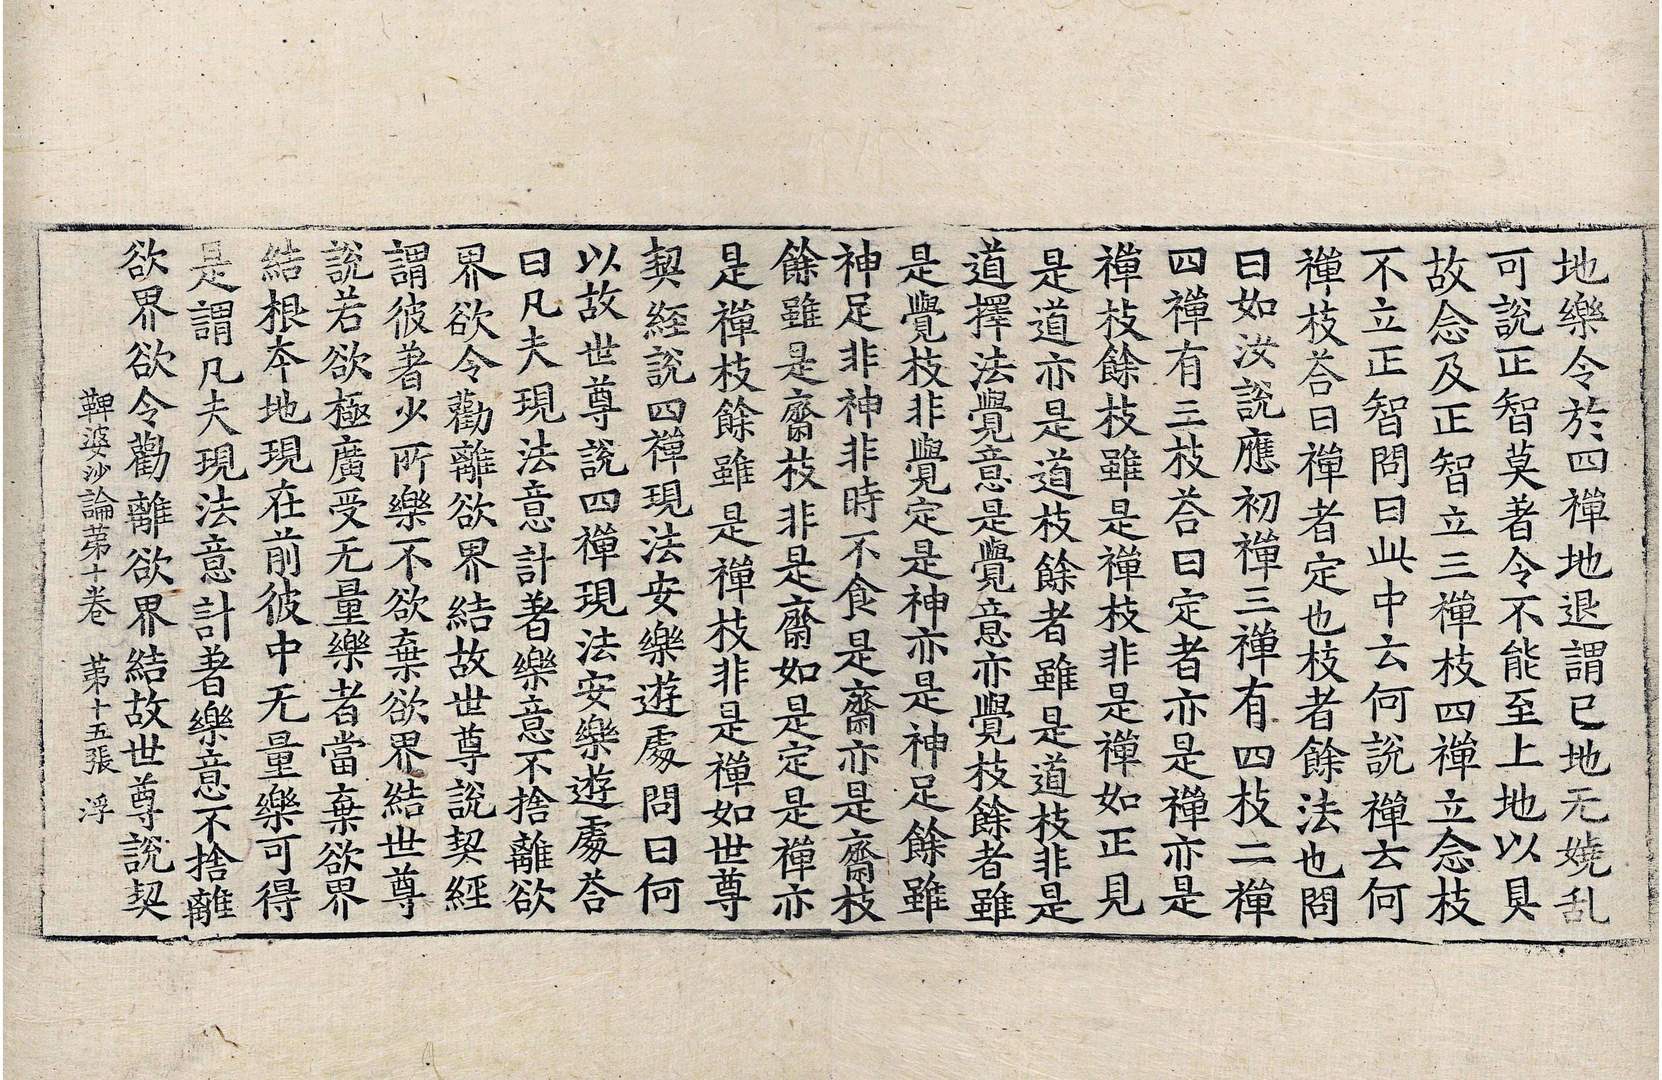 地樂令於四禪地退謂已地无嬈乱
可說正智莫著令不能至上地以具
故念及正智立三禪枝四禪立念枝
不立正智問曰此中云何說禪云何
禪枝荅曰禪者定也枝者餘法也問
曰如汝說應初禪三禪有四枝二禪
四禪有三枝荅曰定者亦是禪亦是
禪枝餘枝雖是禪枝非是禪如正見
是道亦是道枝餘者雖是道枝非是
道擇法覺意是覺意亦覺枝餘者雖
是覺枝非覺定是神亦是神足餘雖
神足非神非時不食是齋亦是齋枝
餘雖是齋枝非是齋如是定是禪亦
是禪枝餘雖是禪枝非是禪如世尊
契経說四禪現法安樂遊處問曰何
以故世尊說四禪現法安樂遊處荅
曰凡夫現法意計著樂意不捨離欲
界欲令勸離欲界結故世尊說契經
謂彼著少所樂不欲棄欲界結世尊
說若欲極廣受无量樂者當棄欲界
結根夲地現在前彼中无量樂可得
是謂凡夫現法意計著樂意不捨離
欲界欲令勸離欲界結故世尊說契
鞞婆沙論苐十卷　苐十五張　浮